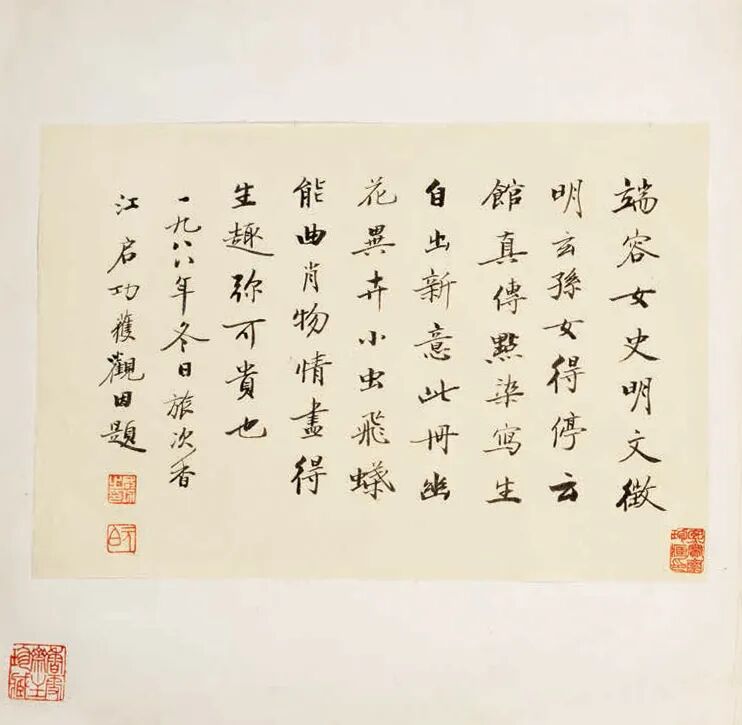 端容女史明文徵
明玄孫女得停云
館真傳點染寫生
自出新意此冊幽
花異卉小虫飛蝶
能曲肖物情盡得
生趣弥可貴也
一九八八年冬日旅次香
江启功獲觀因題